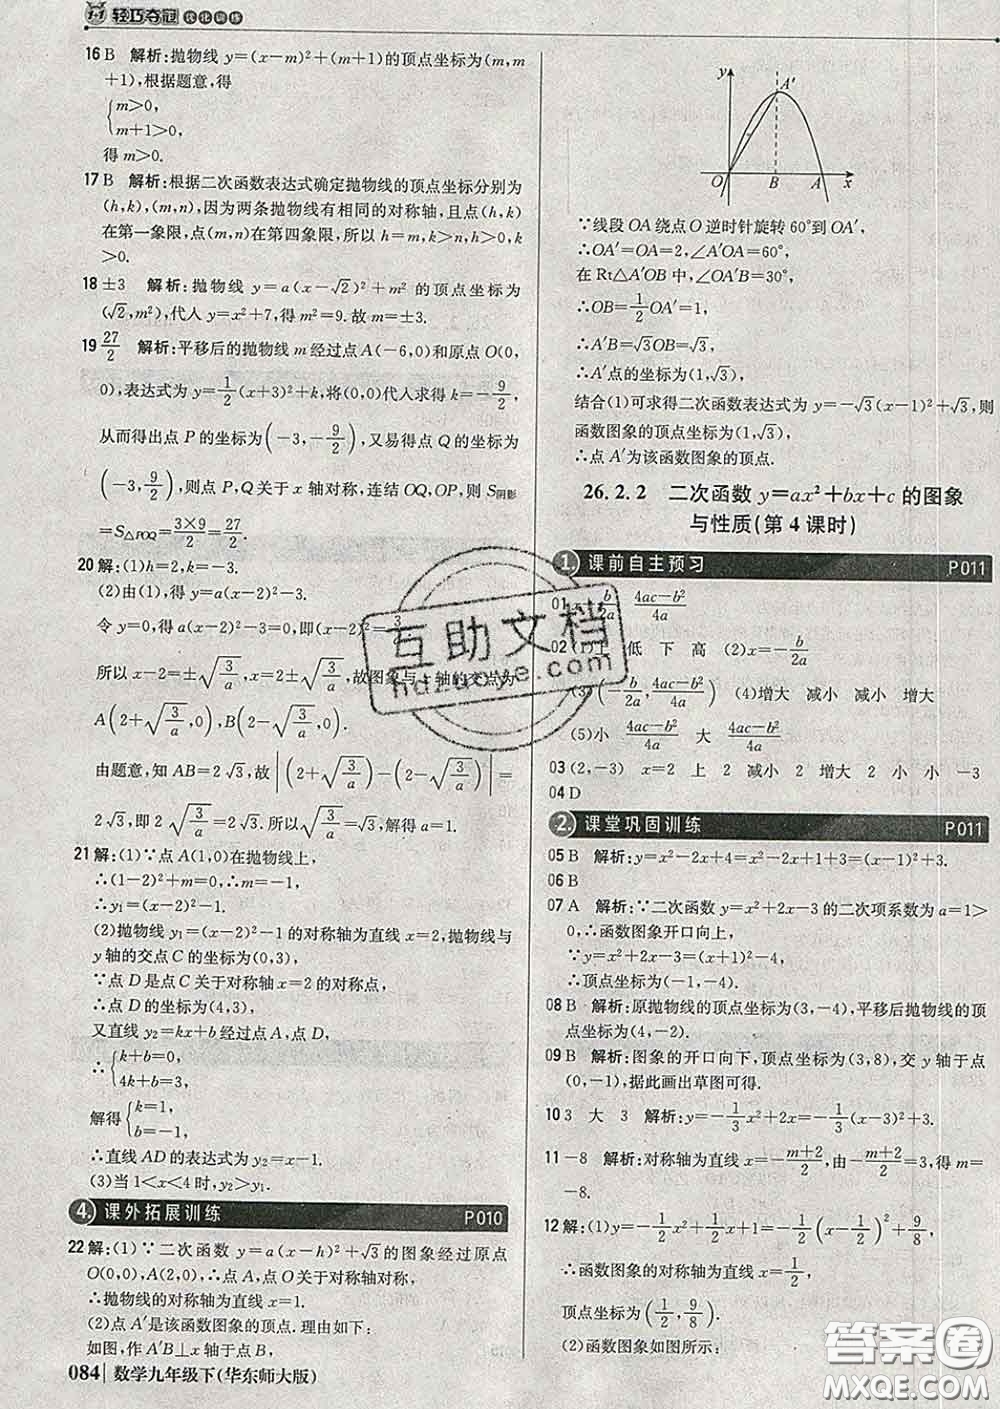 1+1 轻巧夺冠 优化训练
16 B 解析:抛物线 y=(x-m)²+(m+1)的顶点坐标为(m,m
+1),根据题意,得
{m>0,
m+1>0,
得 m>0.
17 B 解析:根据二次函数表达式确定抛物线的顶点坐标分别为
(h,k),(m,n),因为两条抛物线有相同的对称轴,且点(h,k)
在第一象限,点(m,n)在第四象限,所以 h=m,k>n,h>0,k
>0.
18 ±3 解析:抛物线 y=a(x-√2)²+m² 的顶点坐标为
(√2,m²),代人 y=x²+7,得 m²=9.故 m=±3.
19 27/2 解析:平移后的抛物线 m 经过点 A(-6,0)和原点 O(0,
0),表达式为 y=1/2(x+3)²+k,将(0,0)代人求得 k=-9/2,
从而得出点 P 的坐标为(-3,-9/2),又易得点 Q 的坐标为
(-3,9/2),因此点 P,Q 关于 x 轴对称,连结 OQ,OP,则 S阴影
=S△POQ=3×9/2=27/2.
20 解:(1)h=2,k=-3.
(2)由(1),得 y=a(x-2)²-3.
令 y=0,得 a(x-2)²-3=0,即(x-2)²=3/a
所以 x-2=±√(3/a),x=2±√(3/a),故图象与 x 轴的交点为
A(2+√(3/a),0),B(2-√(3/a),0).
由题意,知 AB=2√3,故|(2+√(3/a))-(2-√(3/a))|=
2√3,即 2√(3/a)=2√3.所以√(3/a)=√3,解得 a=1.
21 解:(1)∵点 A(1,0)在抛物线上,
∴(1-2)²+m=0,∴m=-1.
∴y₁=(x-2)²-1.
(2)抛物线 y₁=(x-2)²-1 的对称轴为直线 x=2,抛物线与
y 轴的交点 C 的坐标为(0,3),
∵点 D 是点 C 关于对称轴 x=2 的对称点,
∴点 D 的坐标为(4,3),
又直线 y₂=kx+b 经过点 A,点 D,
∴{k+b=0,
4k+b=3,
解得{k=1,
b=-1,
∴直线 AD 的表达式为 y₂=x-1.
(3)当 1<x<4 时,y₂>y₁.
4. 课外拓展训练 P010
22 解:(1)∵二次函数 y=a(x-h)²+√3的图象经过原点
O(0,0),A(2,0),∴点 A,点 O 关于对称轴对称,
∴抛物线的对称轴为直线 x=1.
(2)点 A′是该函数图象的顶点.理由如下:
如图,作 A′B⊥x 轴于点 B,
084 数学九年级下(华东师大版)
y
A′
O B A x
∵线段 OA 绕点 O 逆时针旋转 60°到 OA′,
∴OA′=OA=2,∠A′OA=60°,
在 Rt△A′OB 中,∠OA′B=30°,
∴OB=1/2OA′=1,
∴A′B=√3OB=√3,
∴A′点的坐标为(1,√3),
结合(1)可求得二次函数表达式为 y=-√3(x-1)²+√3,则
函数图象的顶点坐标为(1,√3),
∴点 A′为该函数图象的顶点.
26.2.2 二次函数 y=ax²+bx+c 的图象
与性质(第 4 课时)
1. 课前自主预习 P011
01 -b/2a 4ac-b²/4a
02 (1)上 低 下 高 (2)x=-b/2a
(3)(-b/2a,4ac-b²/4a) (4)增大 减小 减小 增大
(5)小 4ac-b²/4a 大 4ac-b²/4a
03 (2,-3) x=2 上 2 减小 2 增大 2 小 小 -3
04 D
2. 课堂巩固训练 P011
05 B 解析:y=x²-2x+4=x²-2x+1+3=(x-1)²+3.
06 B
07 A 解析:∵二次函数 y=x²+2x-3 的二次项系数为 a=1>
0,∴函数图象开口向上,
∵y=x²+2x-3=(x+1)²-4,
∴顶点坐标为(-1,-4).
08 B 解析:原抛物线的顶点坐标为(3,-4),平移后抛物线的顶
点坐标为(4,-2).
09 B 解析:图象的开口向下,顶点坐标为(3,8),交 y 轴于点
(0,-1),据此画出草图可得.
10 3 大 3 解析:y=-1/3x²+2x=-1/3(x-3)²+3.
11 -8 解析:对称轴为直线 x=-(m+2)/2,由-(m+2)/2=3,得 m=
-8.
12 解:(1)y=-1/2x²+1/2x+1=-1/2(x-1/2)²+9/8,
∴函数图象的对称轴为直线 x=1/2,
顶点坐标为(1/2,9/8).
(2)函数图象如图所示:
互助文档
hdzuoye.com
答案圈
MXQE.COM